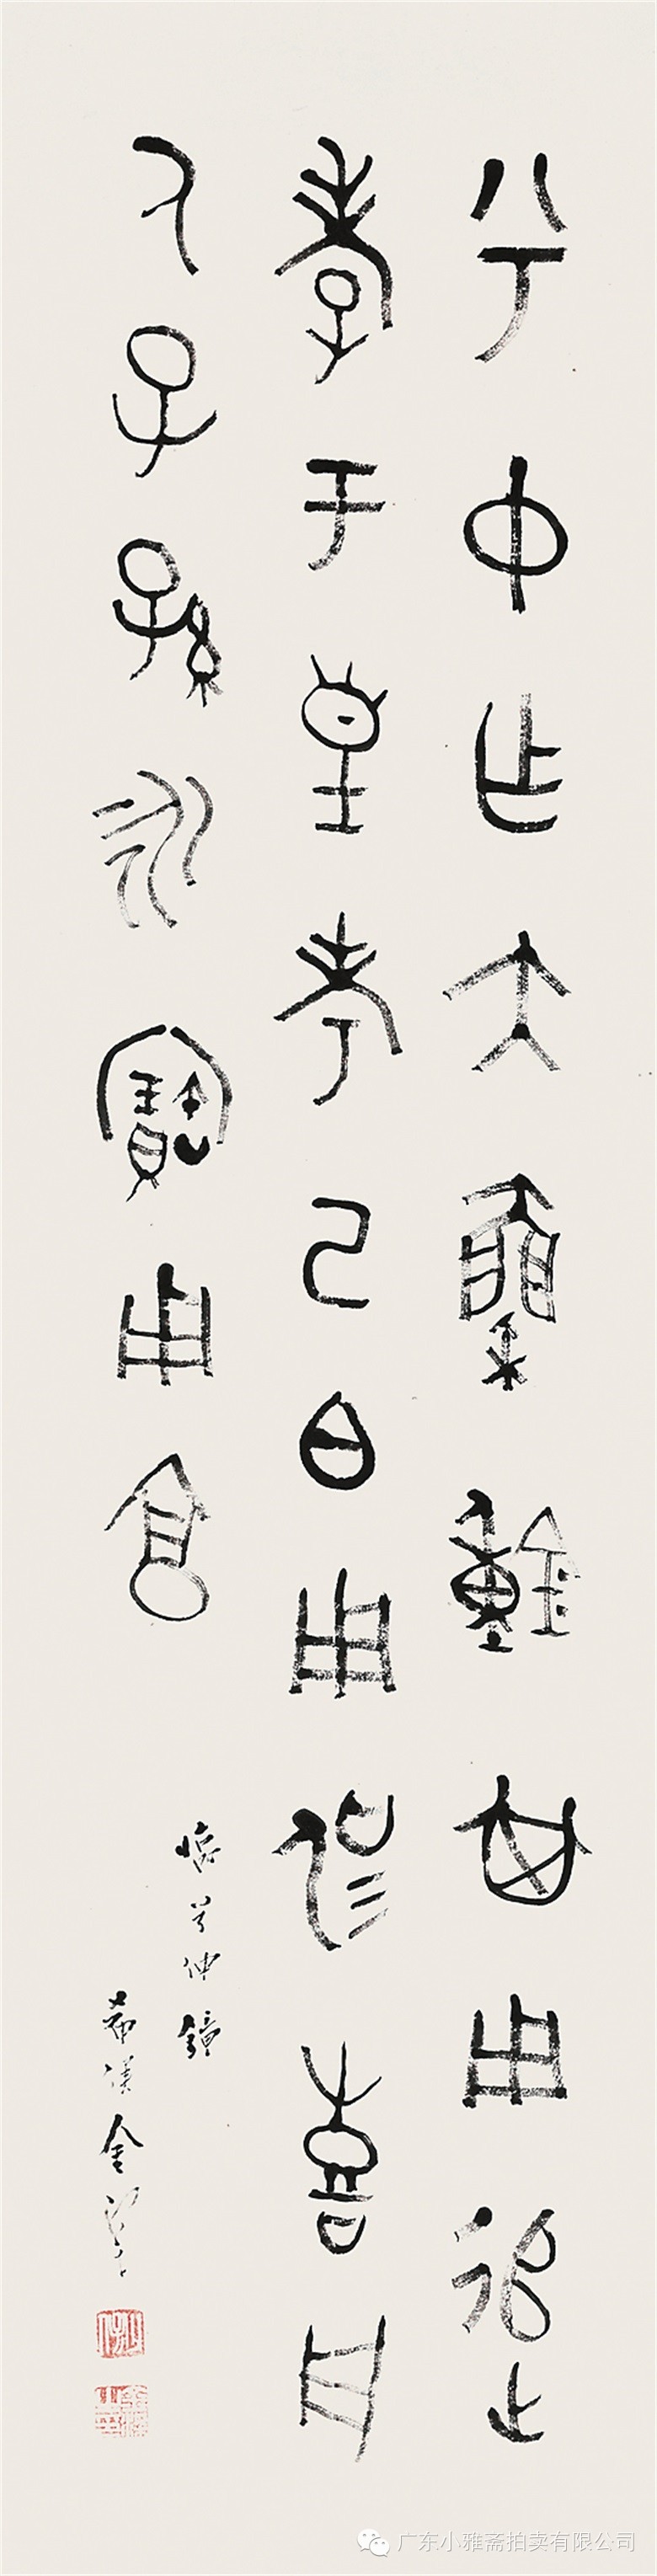 兮中乍大鐘其用追
孝于皇考己白用侃喜
人子孫永寶用享
臨兮仲鐘
希漢金
广东小雅斋拍卖有限公司